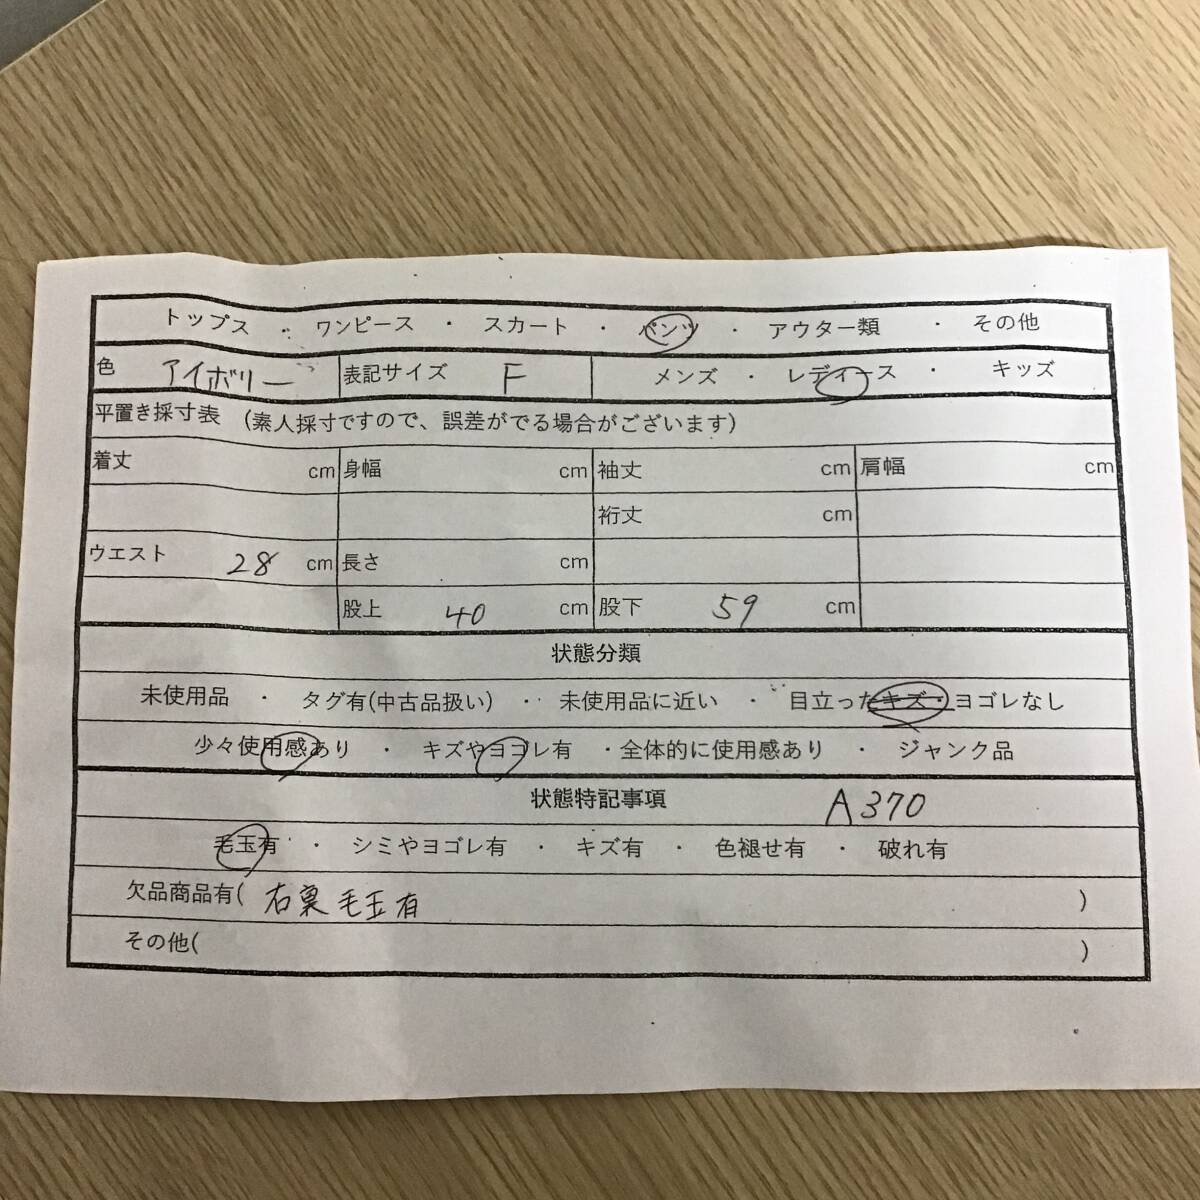 トップス ・ ワンピース ・ スカート ・ パンツ ・ アウター類 ・ その他
色 アイボリー 表記サイズ F メンズ ・ レディース ・ キッズ
平置き採寸表 (素人採寸ですので、誤差がでる場合がございます)
着丈 cm 身幅 cm 袖丈 cm 肩幅 cm
裄丈 cm
ウエスト 28 cm 長さ cm
股上 40 cm 股下 59 cm
状態分類
未使用品 ・ タグ有(中古品扱い) ・ 未使用品に近い ・ 目立ったキズ・ヨゴレなし
少々使用感あり ・ キズやヨゴレ有 ・全体的に使用感あり ・ ジャンク品
状態特記事項 A370
毛玉有 ・ シミやヨゴレ有 ・ キズ有 ・ 色褪せ有 ・ 破れ有
欠品商品有( 右裏毛玉有 )
その他( )